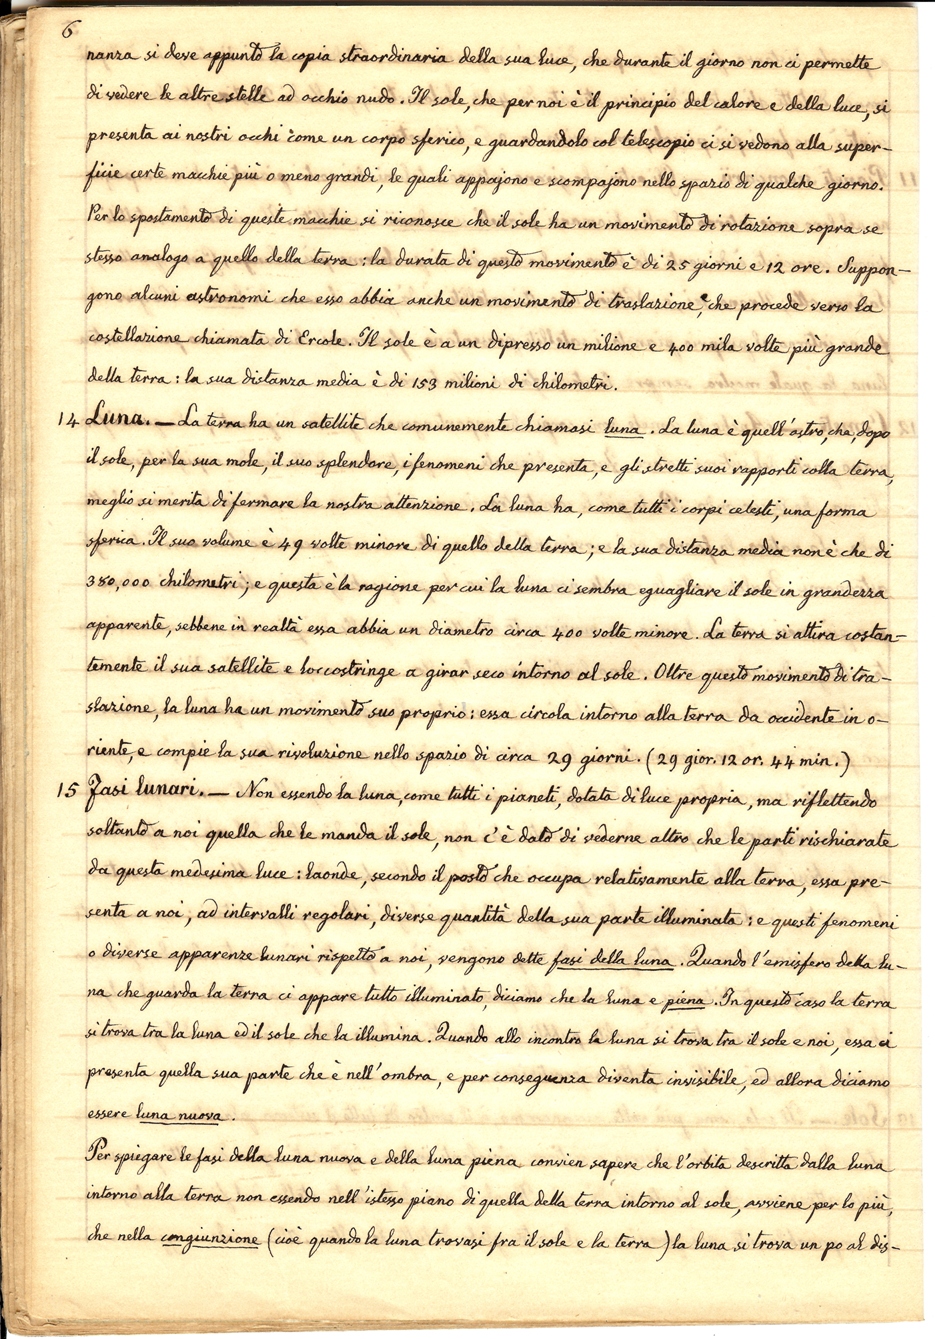 6
nanza si deve appunto la copia straordinaria della sua luce, che durante il giorno non ci permette
di vedere le altre stelle ad occhio nudo. Il sole, che per noi è il principio del calore e della luce, si
presenta ai nostri occhi come un corpo sferico, e guardandolo col telescopio ci si vedono alla super-
ficie certe macchie più o meno grandi, le quali appajono e scompajono nello spazio di qualche giorno.
Per lo spostamento di queste macchie si riconosce che il sole ha un movimento di rotazione sopra se
stesso analogo a quello della terra: la durata di questo movimento è di 25 giorni e 12 ore. Suppon-
gono alcuni astronomi che esso abbia anche un movimento di traslazione, che procede verso la
costellazione chiamata di Ercole. Il sole è a un dipresso un milione e 400 mila volte più grande
della terra: la sua distanza media è di 153 milioni di chilometri.
14 Luna. — La terra ha un satellite che comunemente chiamasi luna. La luna è quell'astro, che, dopo
il sole, per la sua mole, il suo splendore, i fenomeni che presenta, e gli stretti suoi rapporti colla terra,
meglio si merita di fermare la nostra attenzione. La luna ha, come tutti i corpi celesti, una forma
sferica. Il suo volume è 49 volte minore di quello della terra; e la sua distanza media non è che di
380,000 chilometri; e questa è la ragione per cui la luna ci sembra eguagliare il sole in grandezza
apparente, sebbene in realtà essa abbia un diametro circa 400 volte minore. La terra si attira costan-
temente il sua satellite e lo costringe a girar seco intorno al sole. Oltre questo movimento di tra-
slazione, la luna ha un movimento suo proprio: essa circola intorno alla terra da occidente in o-
riente, e compie la sua rivoluzione nello spazio di circa 29 giorni. (29 gior. 12 or. 44 min.)
15 Fasi lunari. — Non essendo la luna, come tutti i pianeti, dotata di luce propria, ma riflettendo
soltanto a noi quella che le manda il sole, non c'è dato di vederne altro che le parti rischiarate
da questa medesima luce: laonde, secondo il posto che occupa relativamente alla terra, essa pre-
senta a noi, ad intervalli regolari, diverse quantità della sua parte illuminata: e questi fenomeni
o diverse apparenze lunari rispetto a noi, vengono dette fasi della luna. Quando l'emisfero della lu-
na che guarda la terra ci appare tutto illuminato, diciamo che la luna e piena. In questo caso la terra
si trova tra la luna ed il sole che la illumina. Quando allo incontro la luna si trova tra il sole e noi, essa ci
presenta quella sua parte che è nell'ombra, e per conseguenza diventa invisibile, ed allora diciamo
essere luna nuova.
Per spiegare le fasi della luna nuova e della luna piena convien sapere che l'orbita descritta dalla luna
intorno alla terra non essendo nell'istesso piano di quella della terra intorno al sole, avviene per lo più,
che nella congiunzione (cioè quando la luna trovasi fra il sole e la terra) la luna si trova un po al dis-